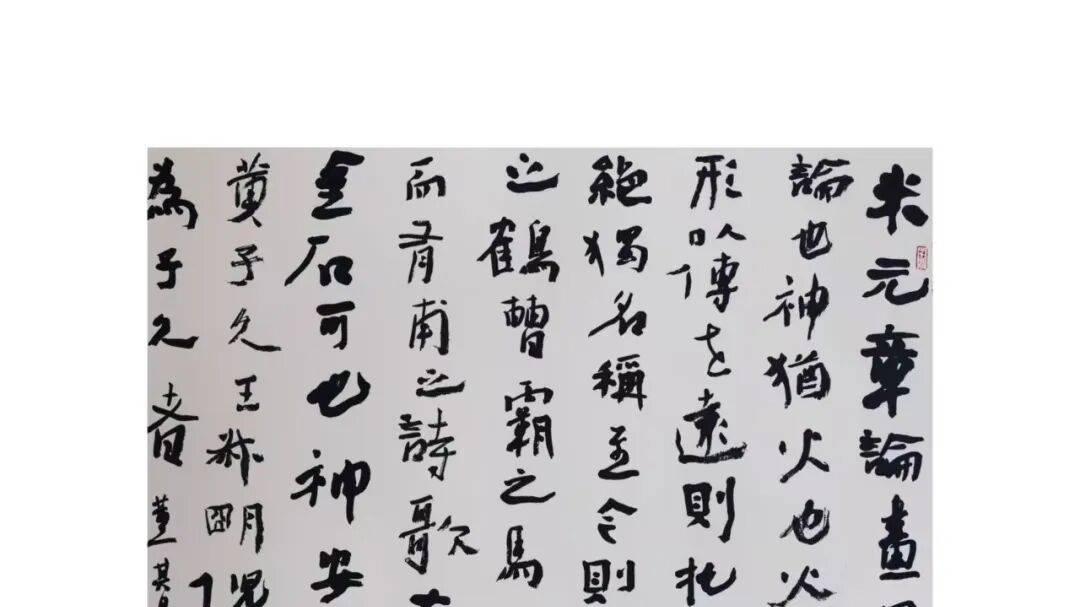 米元章論畫
論也神猶火也火
形以傳之遠則托
絶獨名稱至今則
之鶴曹霸之馬
而有甫之詩歌
金石可也神安
黃子久王叔明
為子久者 董其